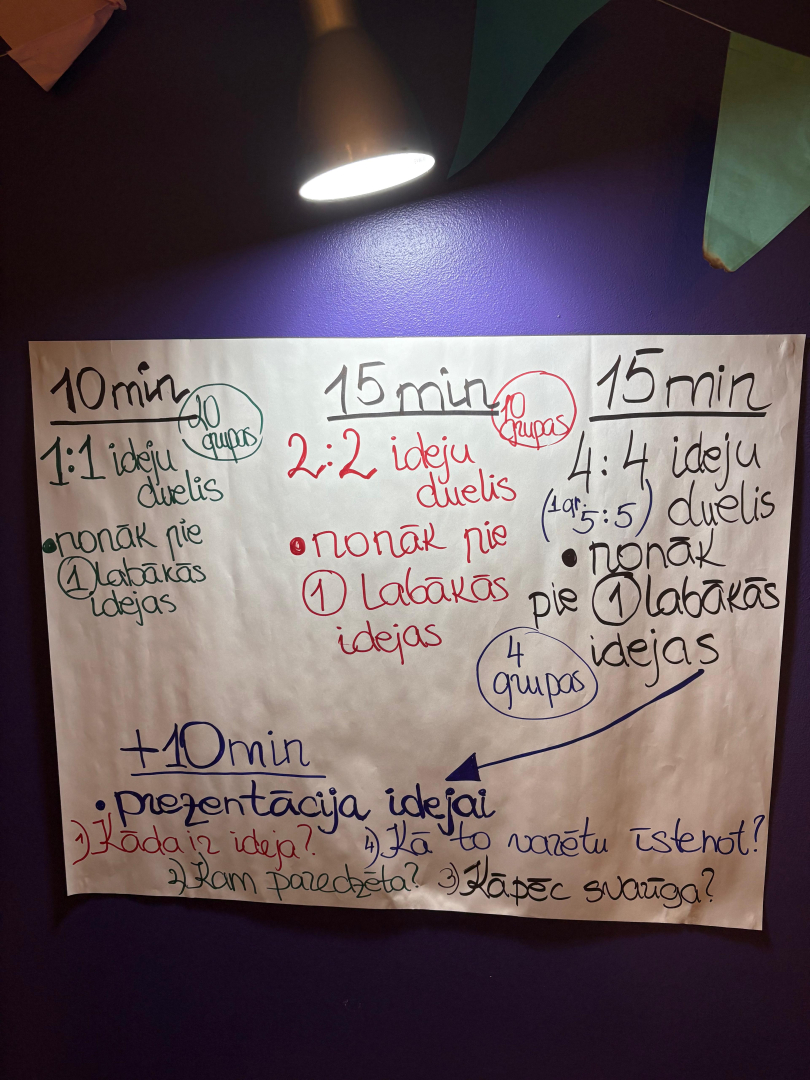 10min
20
grupas
1:1 ideju
duelis
• nonāk pie
1 labākās
idejas
15min
10
grupas
2:2 ideju
duelis
• nonāk pie
1 Labākās
idejas
15min
4:4 ideju
(1 gr. 5:5) duelis
• nonāk
pie 1 labākās
idejas
4
grupas
+10min
• prezentācija idejai
1) Kāda ir ideja?
2) Kam paredzēta?
3) Kāpēc svarīga?
4) Kā to varētu īstenot?